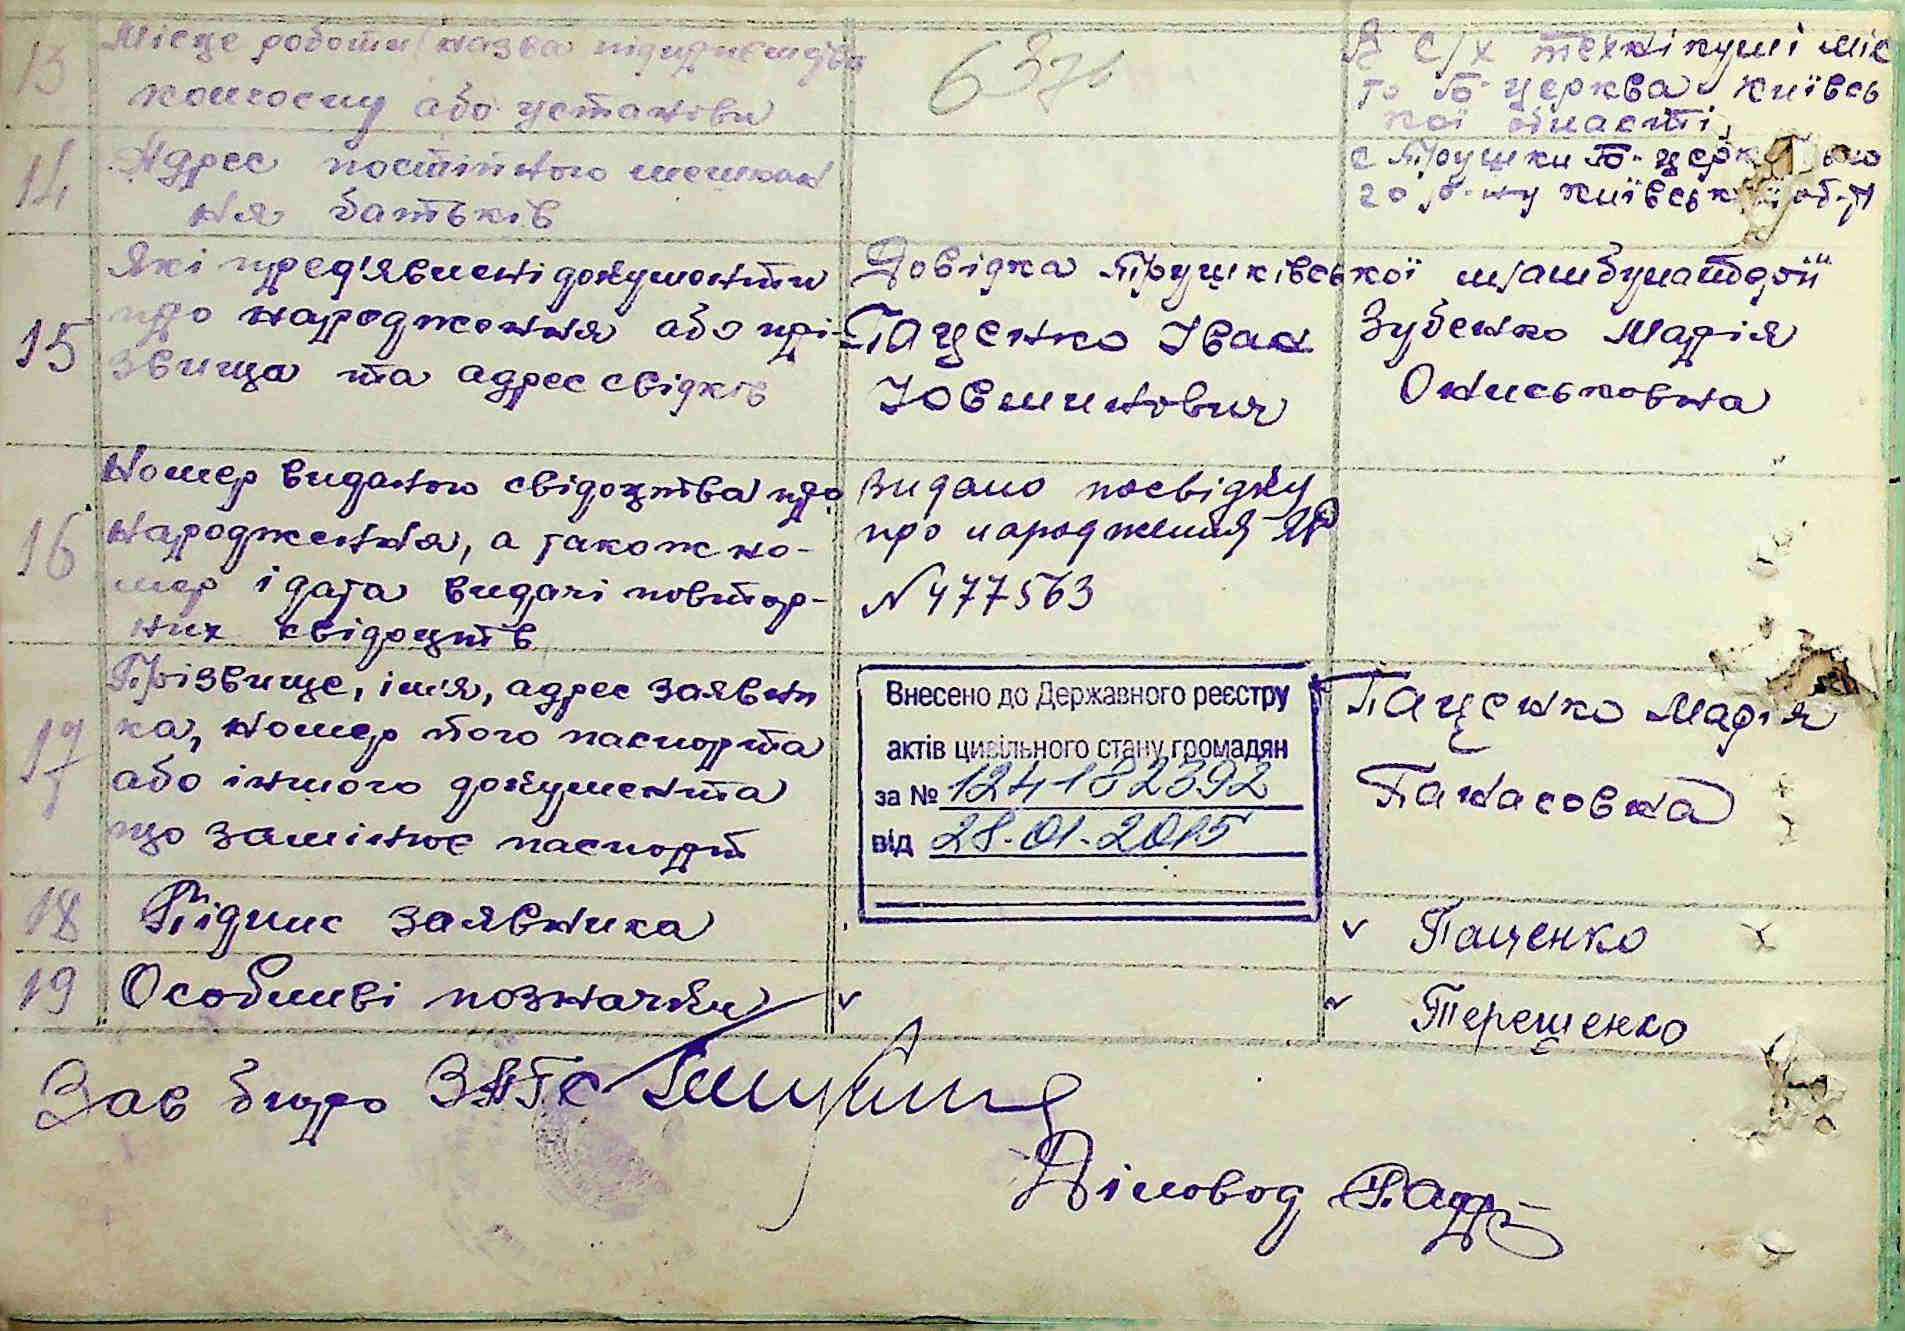 13 Місце роботи (назва підприємства
колгоспу або установи
637
В с/х технікумі міс
то Б-церква Київсь
кої області,
14 Адрес постійного мешкан
ня батьків
с Трушки Б-церк
го р-ну Київськ обл
15 Які пред'явлені документи
про народження або прі-
звища та адрес свідків
Довідка Трушківської м/амбулаторії
Паценко Іван
Зубенко Марія
Юхимнович
Ониськовна
16 Номер виданого свідоцтва про
народження, а також но-
мер і дата видачі повтор-
них свідоцтв
Видано посвідку
про народження
N 477563
17 Прізвище, імя, адрес заявни
ка, номер його паспорта
або іншого документа
що замінює паспорт
Внесено до Державного реєстру
актів цивільного стану громадян
за № 1241182392
від 28.01.2015
Паценко Марія
Панасовна
18 Підпис заявника
Паценко
19 Особливі позначки
Терещенко
Зав бюро ЗАГС
Діловод